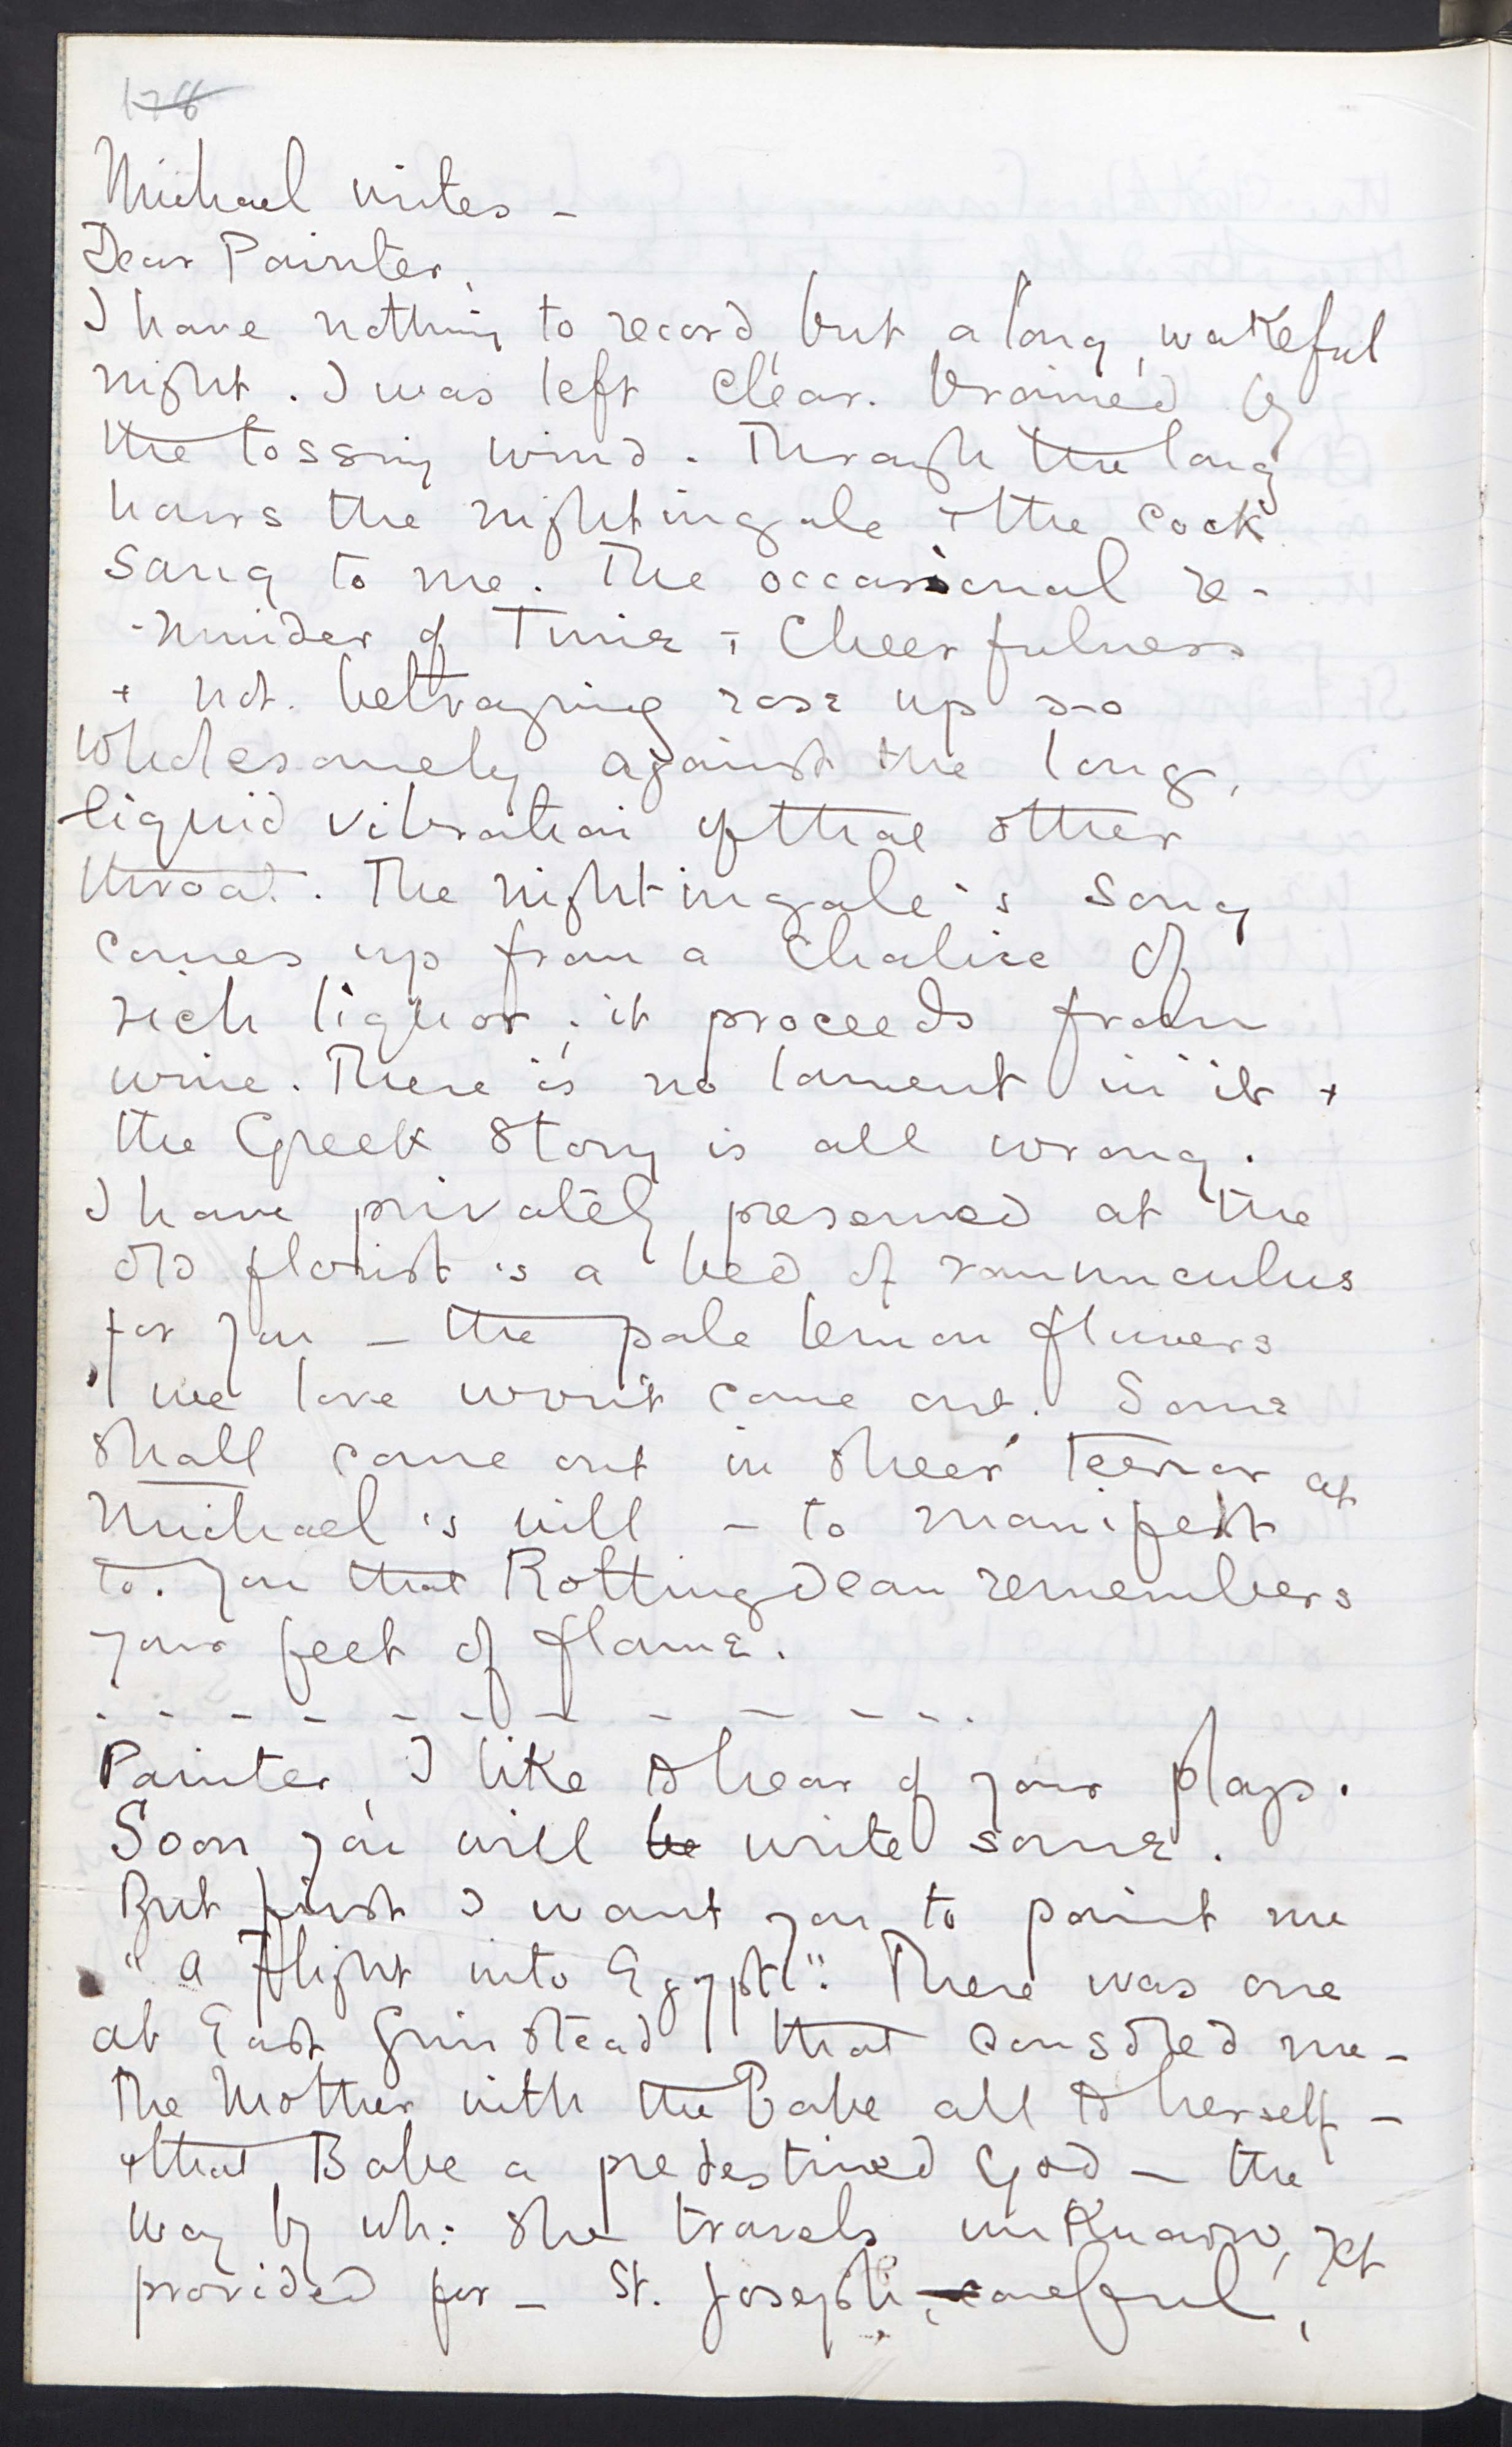 178
Michael writes -
Dear Painter,
I have nothing to record but a long, wakeful
night. I was left clear-brained by
the tossing wind. Through the long
hours the nightingale & the cock
sang to me. The occasional re-
-minder of Time & Cheerfulness
+ not betraying rose up so
wholesomely against the long,
liquid vibration of that other
throat. The nightingale's song
comes up from a chalice of
rich liquor; it proceeds from
wine. There is no lament in it +
the Greek story is all wrong.
I have privately preserved at the
old florist's a bed of rannunculus
for you - the pale lemon flowers
we love won't come out. Some
shall come out in sheer terror at
Michael's will - to manifest
to you that Rottingdean remembers
your feet of flame.
- - - - - - - - - - - -
Painter, I like to hear of your plays.
Soon you will be write some.
But first I want you to paint me
"a Flight into Egypt". There was one
at East Grinstead that consoled me -
The Mother with the Babe all to herself -
+ that Babe a predestined God - the
way by wh: she travels unknown, yet
provided for - St. Joseph, careful,